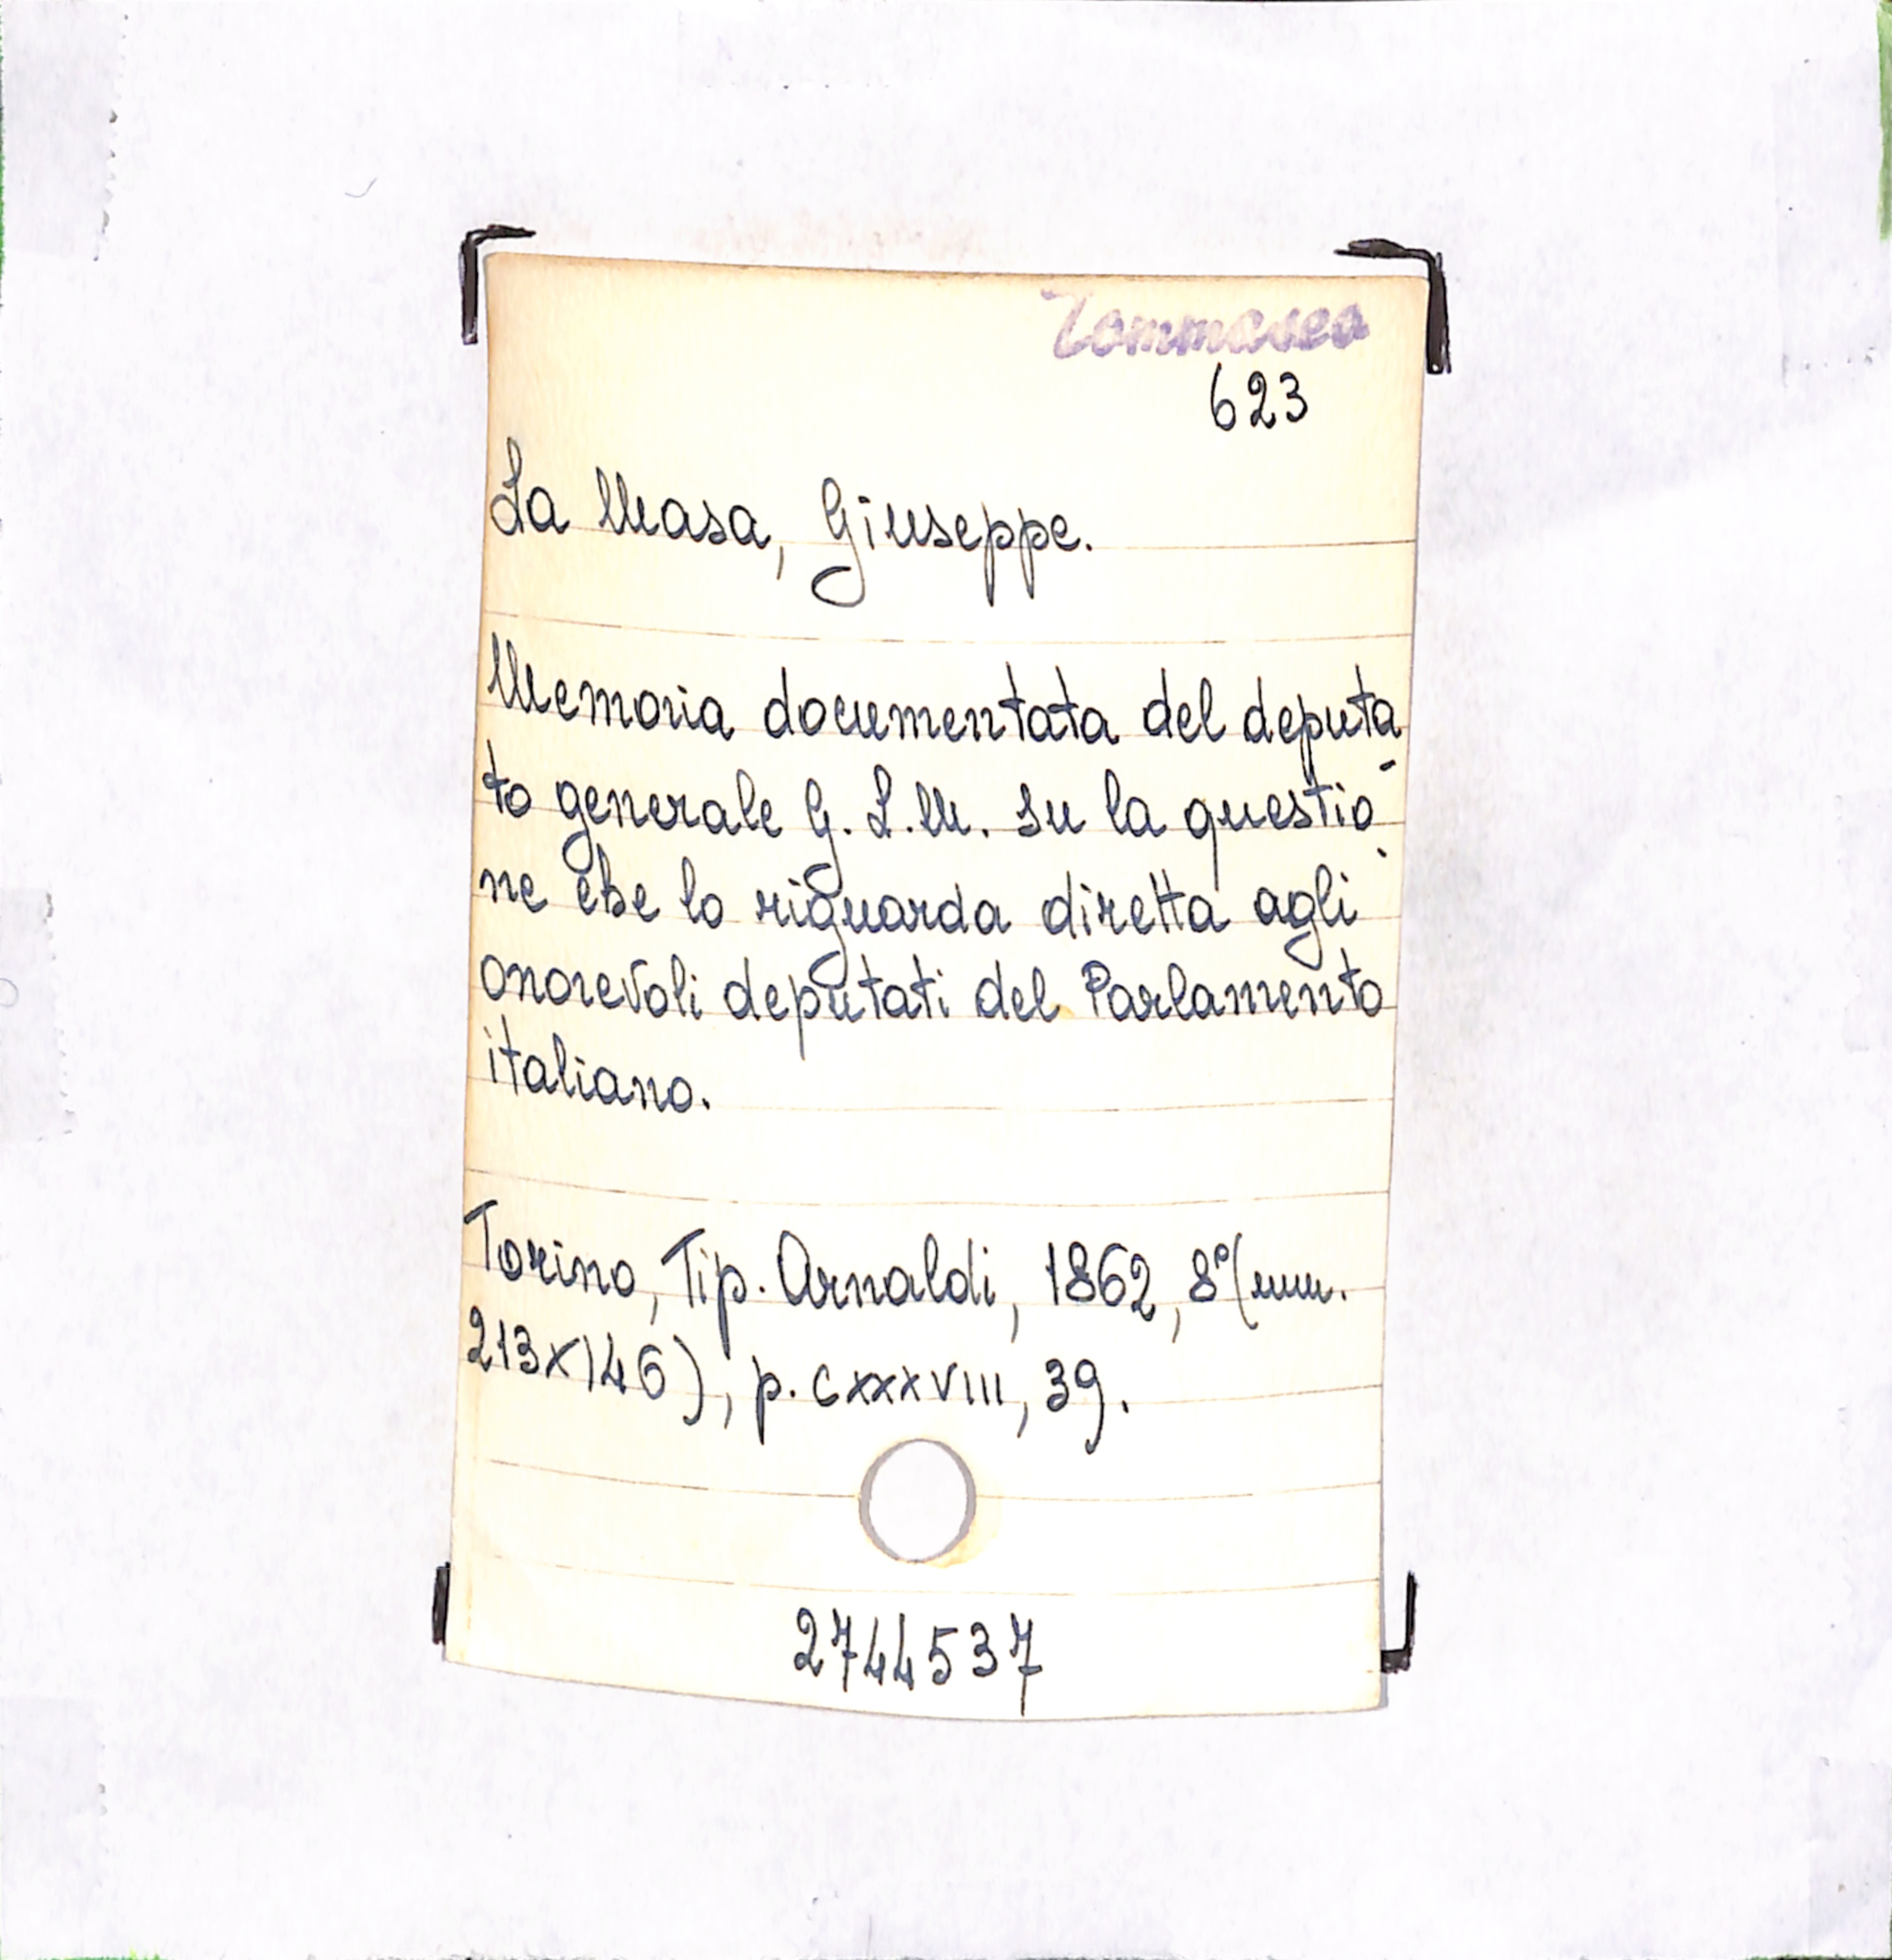 Tommaseo
623
La Masa, Giuseppe.
Memoria documentata del deputa-
to generale G. L. M. su la questio-
ne che lo riguarda diretta agli
onorevoli deputati del Parlamento
italiano.
Torino, Tip. Arnaldi, 1862, 8°(mm.
213x146), p. CXXXVIII, 39.
2744537